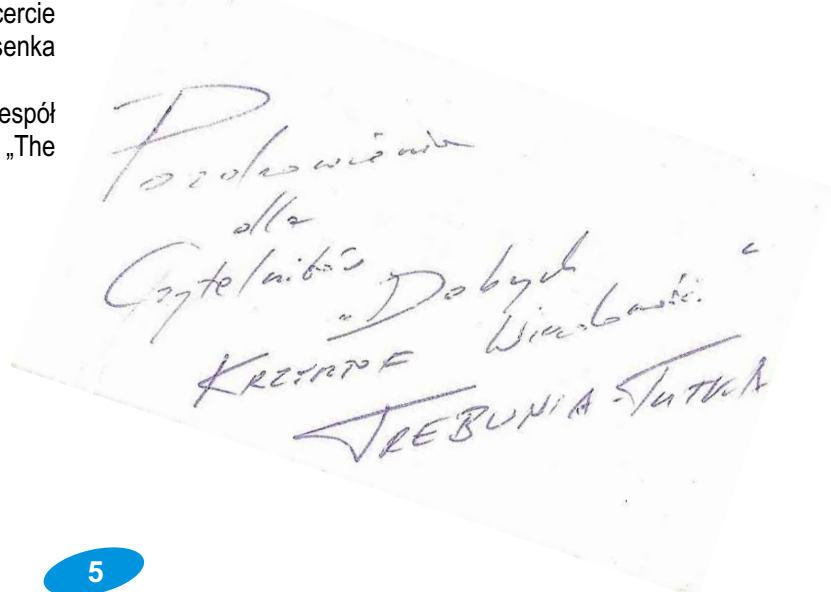 cercie
senka
espół
„The
Pozdrowienia
dla
Czytelników
„Dobrych
Wiadomości"
KRZYSZTOF
TREBUNIA-TUTKA
5